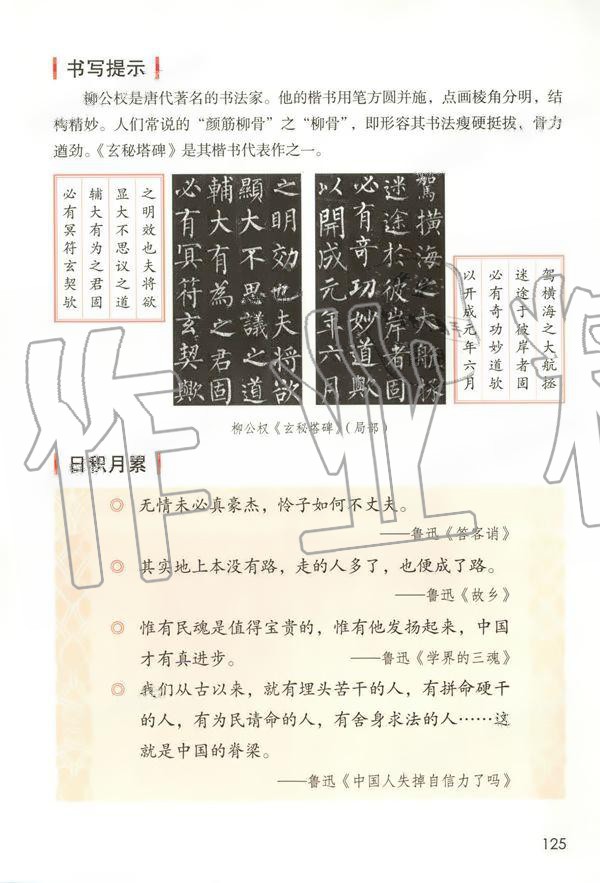 书写提示
柳公权是唐代著名的书法家。他的楷书用笔方圆并施，点画棱角分明，结
构精妙。人们常说的“颜筋柳骨”之“柳骨”，即形容其书法瘦硬挺拔、骨力
遒劲。《玄秘塔碑》是其楷书代表作之一。
之明效也夫将欲
显大不思议之道
辅大有为之君固
必有冥符玄契欤
之明効也夫将欲
顯大不思議之道
輔大有為之君固
必有冥符玄契歟
駕横海之大航拯
迷途於彼岸者固
必有奇功妙道歟
以開成元年六月
驾横海之大航拯
迷途于彼岸者固
必有奇功妙道欤
以开成元年六月
柳公权《玄秘塔碑》（局部）
日积月累
◎ 无情未必真豪杰，怜子如何不丈夫。
——鲁迅《答客诮》
◎ 其实地上本没有路，走的人多了，也便成了路。
——鲁迅《故乡》
◎ 惟有民魂是值得宝贵的，惟有他发扬起来，中国
才有真进步。 ——鲁迅《学界的三魂》
◎ 我们从古以来，就有埋头苦干的人，有拼命硬干
的人，有为民请命的人，有舍身求法的人……这
就是中国的脊梁。
——鲁迅《中国人失掉自信力了吗》
125
作业精